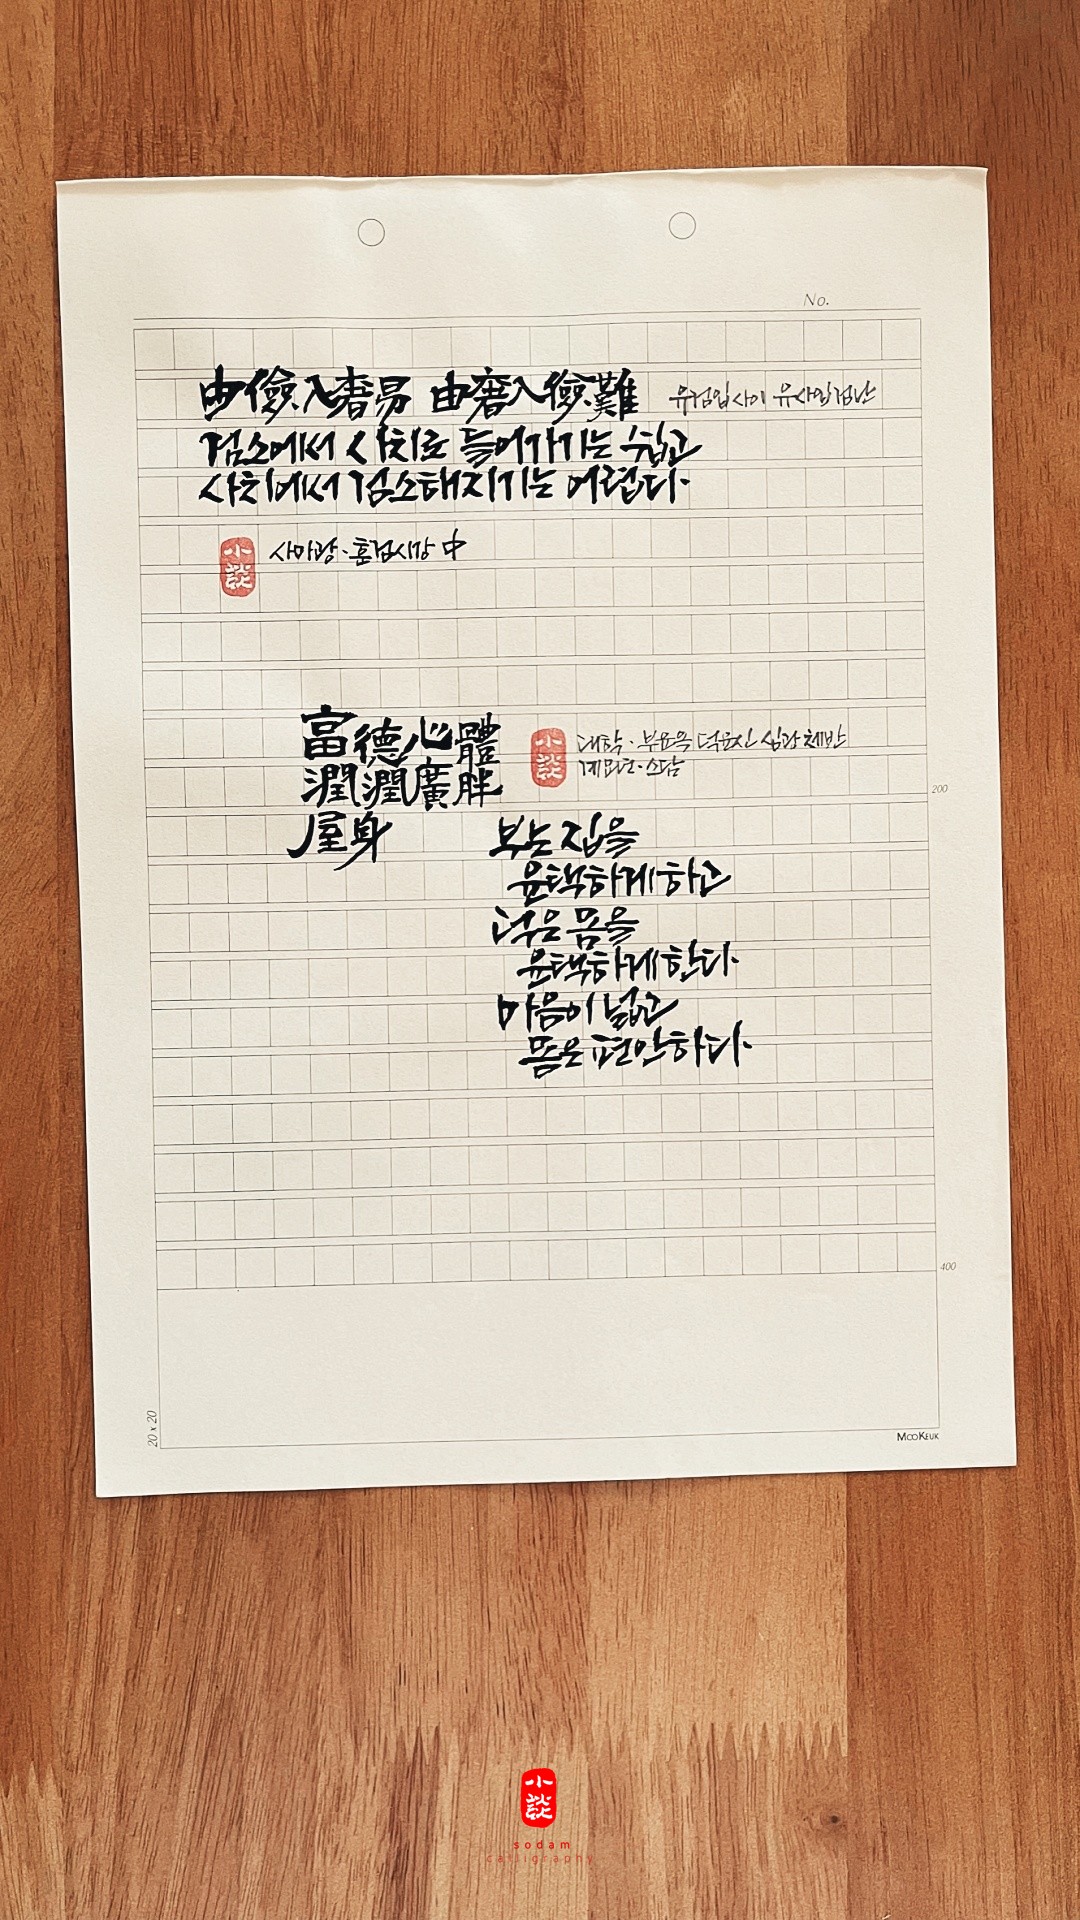 No.
由儉入奢易 由奢入儉難 유검입사이 유사입검난
검소에서 사치로 들어가기는 쉽고
사치에서 검소해지기는 어렵다.
小談 사마광·훈검시강 中
富德心體
潤潤廣胖
屋身
小談 대학·부윤옥 덕윤신 심광체반
계묘로·소담
200
부는 집을
윤택하게 하고
덕은 몸을
윤택하게 한다.
마음이 넓고
몸은 편안하다.
400
20 x 20
MooKeuk
小談
sodam
calligraphy